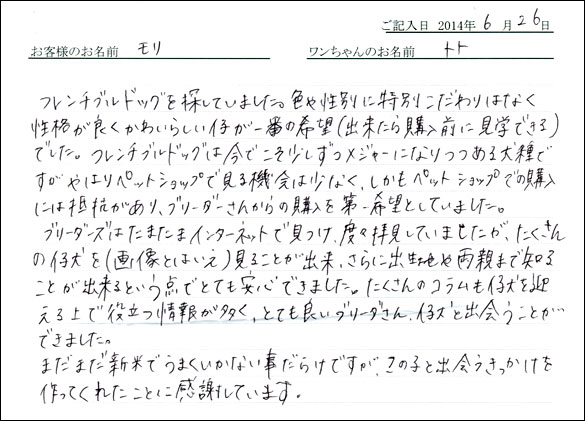 ご記入日 2014年 6月26日
お客様のお名前 モリ ワンちゃんのお名前 トト
フレンチブルドッグを探していました。色や性別に特別こだわりはなく
性格が良くかわいらしい仔が一番の希望(出来たら購入前に見学できる)
でした。フレンチブルドッグは今でこそ少しずつメジャーになりつつある犬種で
すがやはりペットショップで見る機会は少なく、しかもペットショップでの購入
には抵抗があり、ブリーダーさんからの購入を第一希望としていました。
ブリーダーズはたまたまインターネットで見つけ、度々拝見していましたが、たくさん
の仔犬を(画像とはいえ)見ることが出来、さらに出生地や両親まで知る
ことが出来るという点でとても安心できました。たくさんのコラムも仔犬を迎
える上で役立つ情報が多く、とても良いブリーダーさん、仔犬と出会うことが
できました。
まだまだ新米でうまくいかない事だらけですが、この子と出会うきっかけを
作ってくれたことに感謝しています。